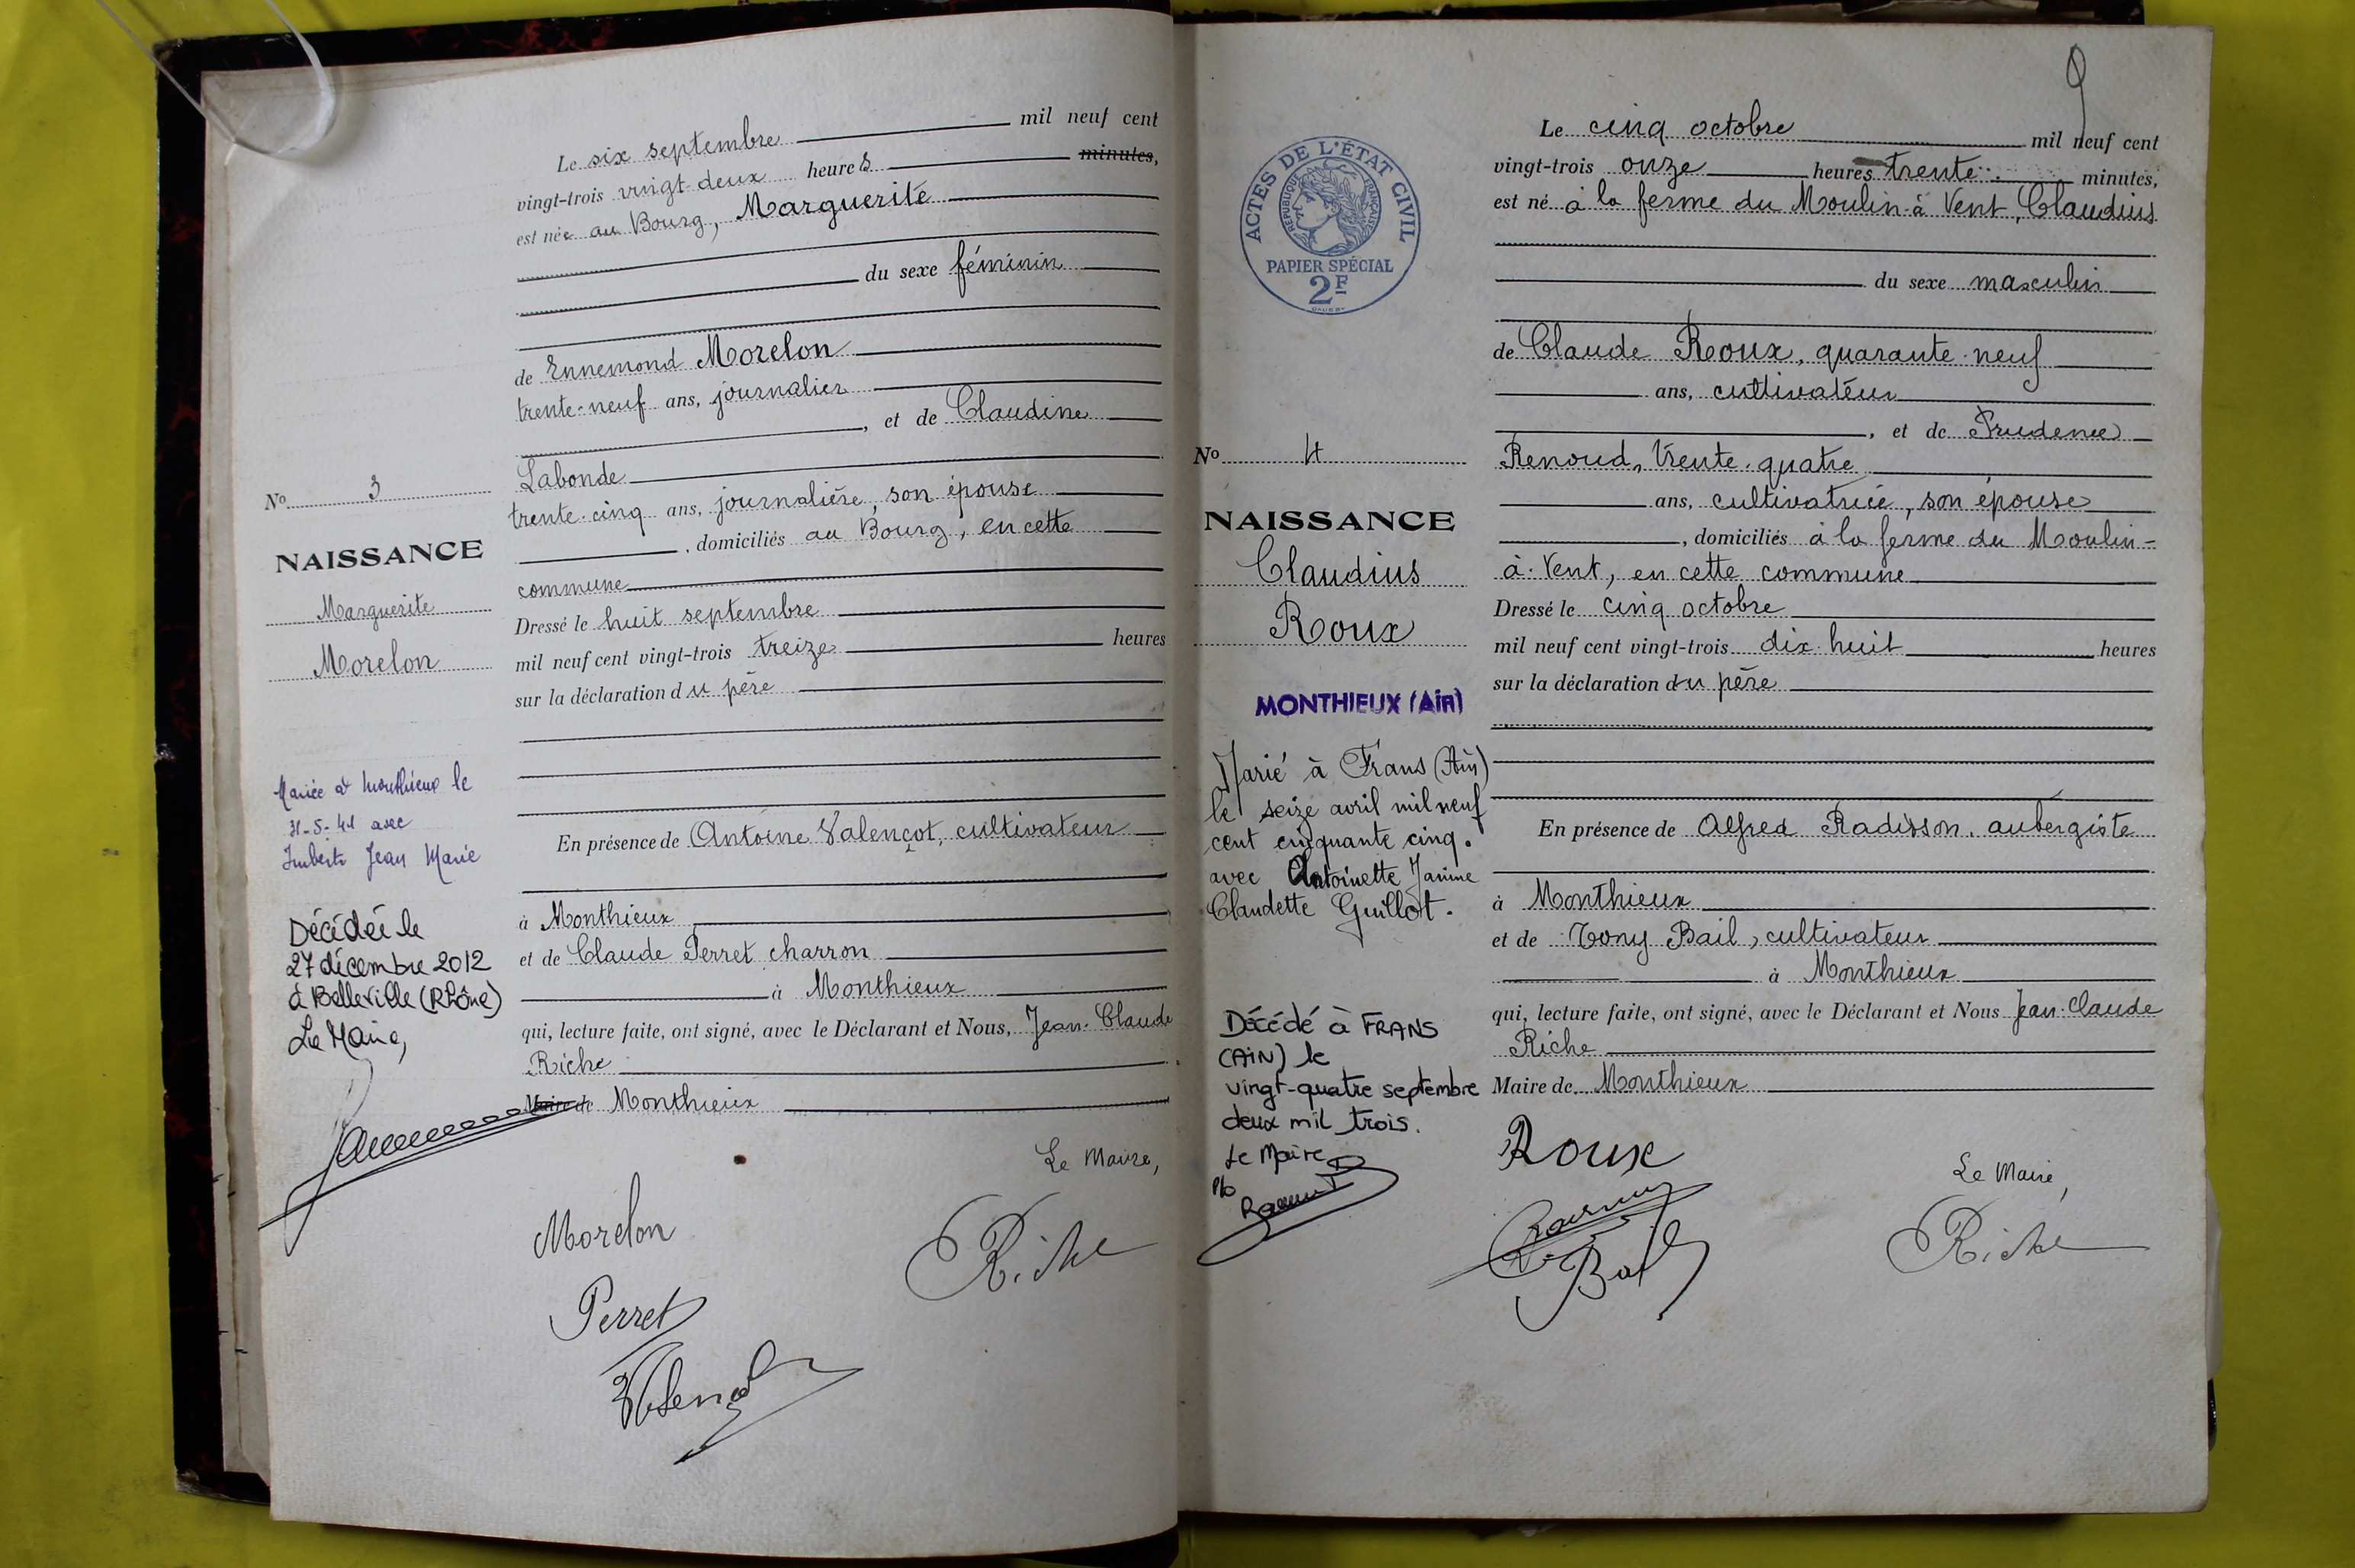 Le six septembre mil neuf cent
vingt-trois vingt-deux heures minutes,
est née au Bourg, Marguerite
du sexe féminin
de Ennemond Morelon
trente-neuf ans, journalier
, et de Claudine
Labonde
trente-cinq ans, journalière, son épouse
, domiciliés au Bourg, en cette
commune
Dressé le huit septembre
mil neuf cent vingt-trois treize heures
sur la déclaration du père
En présence de Antoine Valençot, cultivateur
à Monthieux
et de Claude Perret charron
à Monthieux
qui, lecture faite, ont signé, avec le Déclarant et Nous, Jean-Claude
Riche
Maire de Monthieux
Le Maire,
Morelon
Riche
Perret
Nº 3
NAISSANCE
Marguerite
Morelon
Mariée à Monthieux le
31-5-41 avec
Imbert Jean Marie
Décédée le
27 décembre 2012
à Belleville (Rhône)
Le Maire,
9
Le cinq octobre mil neuf cent
vingt-trois onze heures trente minutes,
est né à la ferme du Moulin-à-Vent, Claudius
du sexe masculin
de Claude Roux, quarante-neuf
ans, cultivateur
, et de Prudence
Renoud, trente-quatre
ans, cultivatrice, son épouse
, domiciliés à la ferme du Moulin-
à-Vent, en cette commune
Dressé le cinq octobre
mil neuf cent vingt-trois dix-huit heures
sur la déclaration du père
En présence de Alfred Radisson, aubergiste
à Monthieux
et de Tony Bail, cultivateur
à Monthieux
qui, lecture faite, ont signé, avec le Déclarant et Nous Jean-Claude
Riche
Maire de Monthieux
Roux
Le Maire,
Bail
Riche
ACTES DE L'ÉTAT CIVIL
RÉPUBLIQUE FRANÇAISE
PAPIER SPÉCIAL
2F
Nº 4
NAISSANCE
Claudius
Roux
MONTHIEUX (Ain)
Marié à Frans (Ain)
le seize avril mil neuf
cent cinquante cinq.
avec Antoinette Janine
Claudette Guillot.
Décédé à FRANS
(AIN) le
vingt-quatre septembre
deux mil trois.
Le Maire